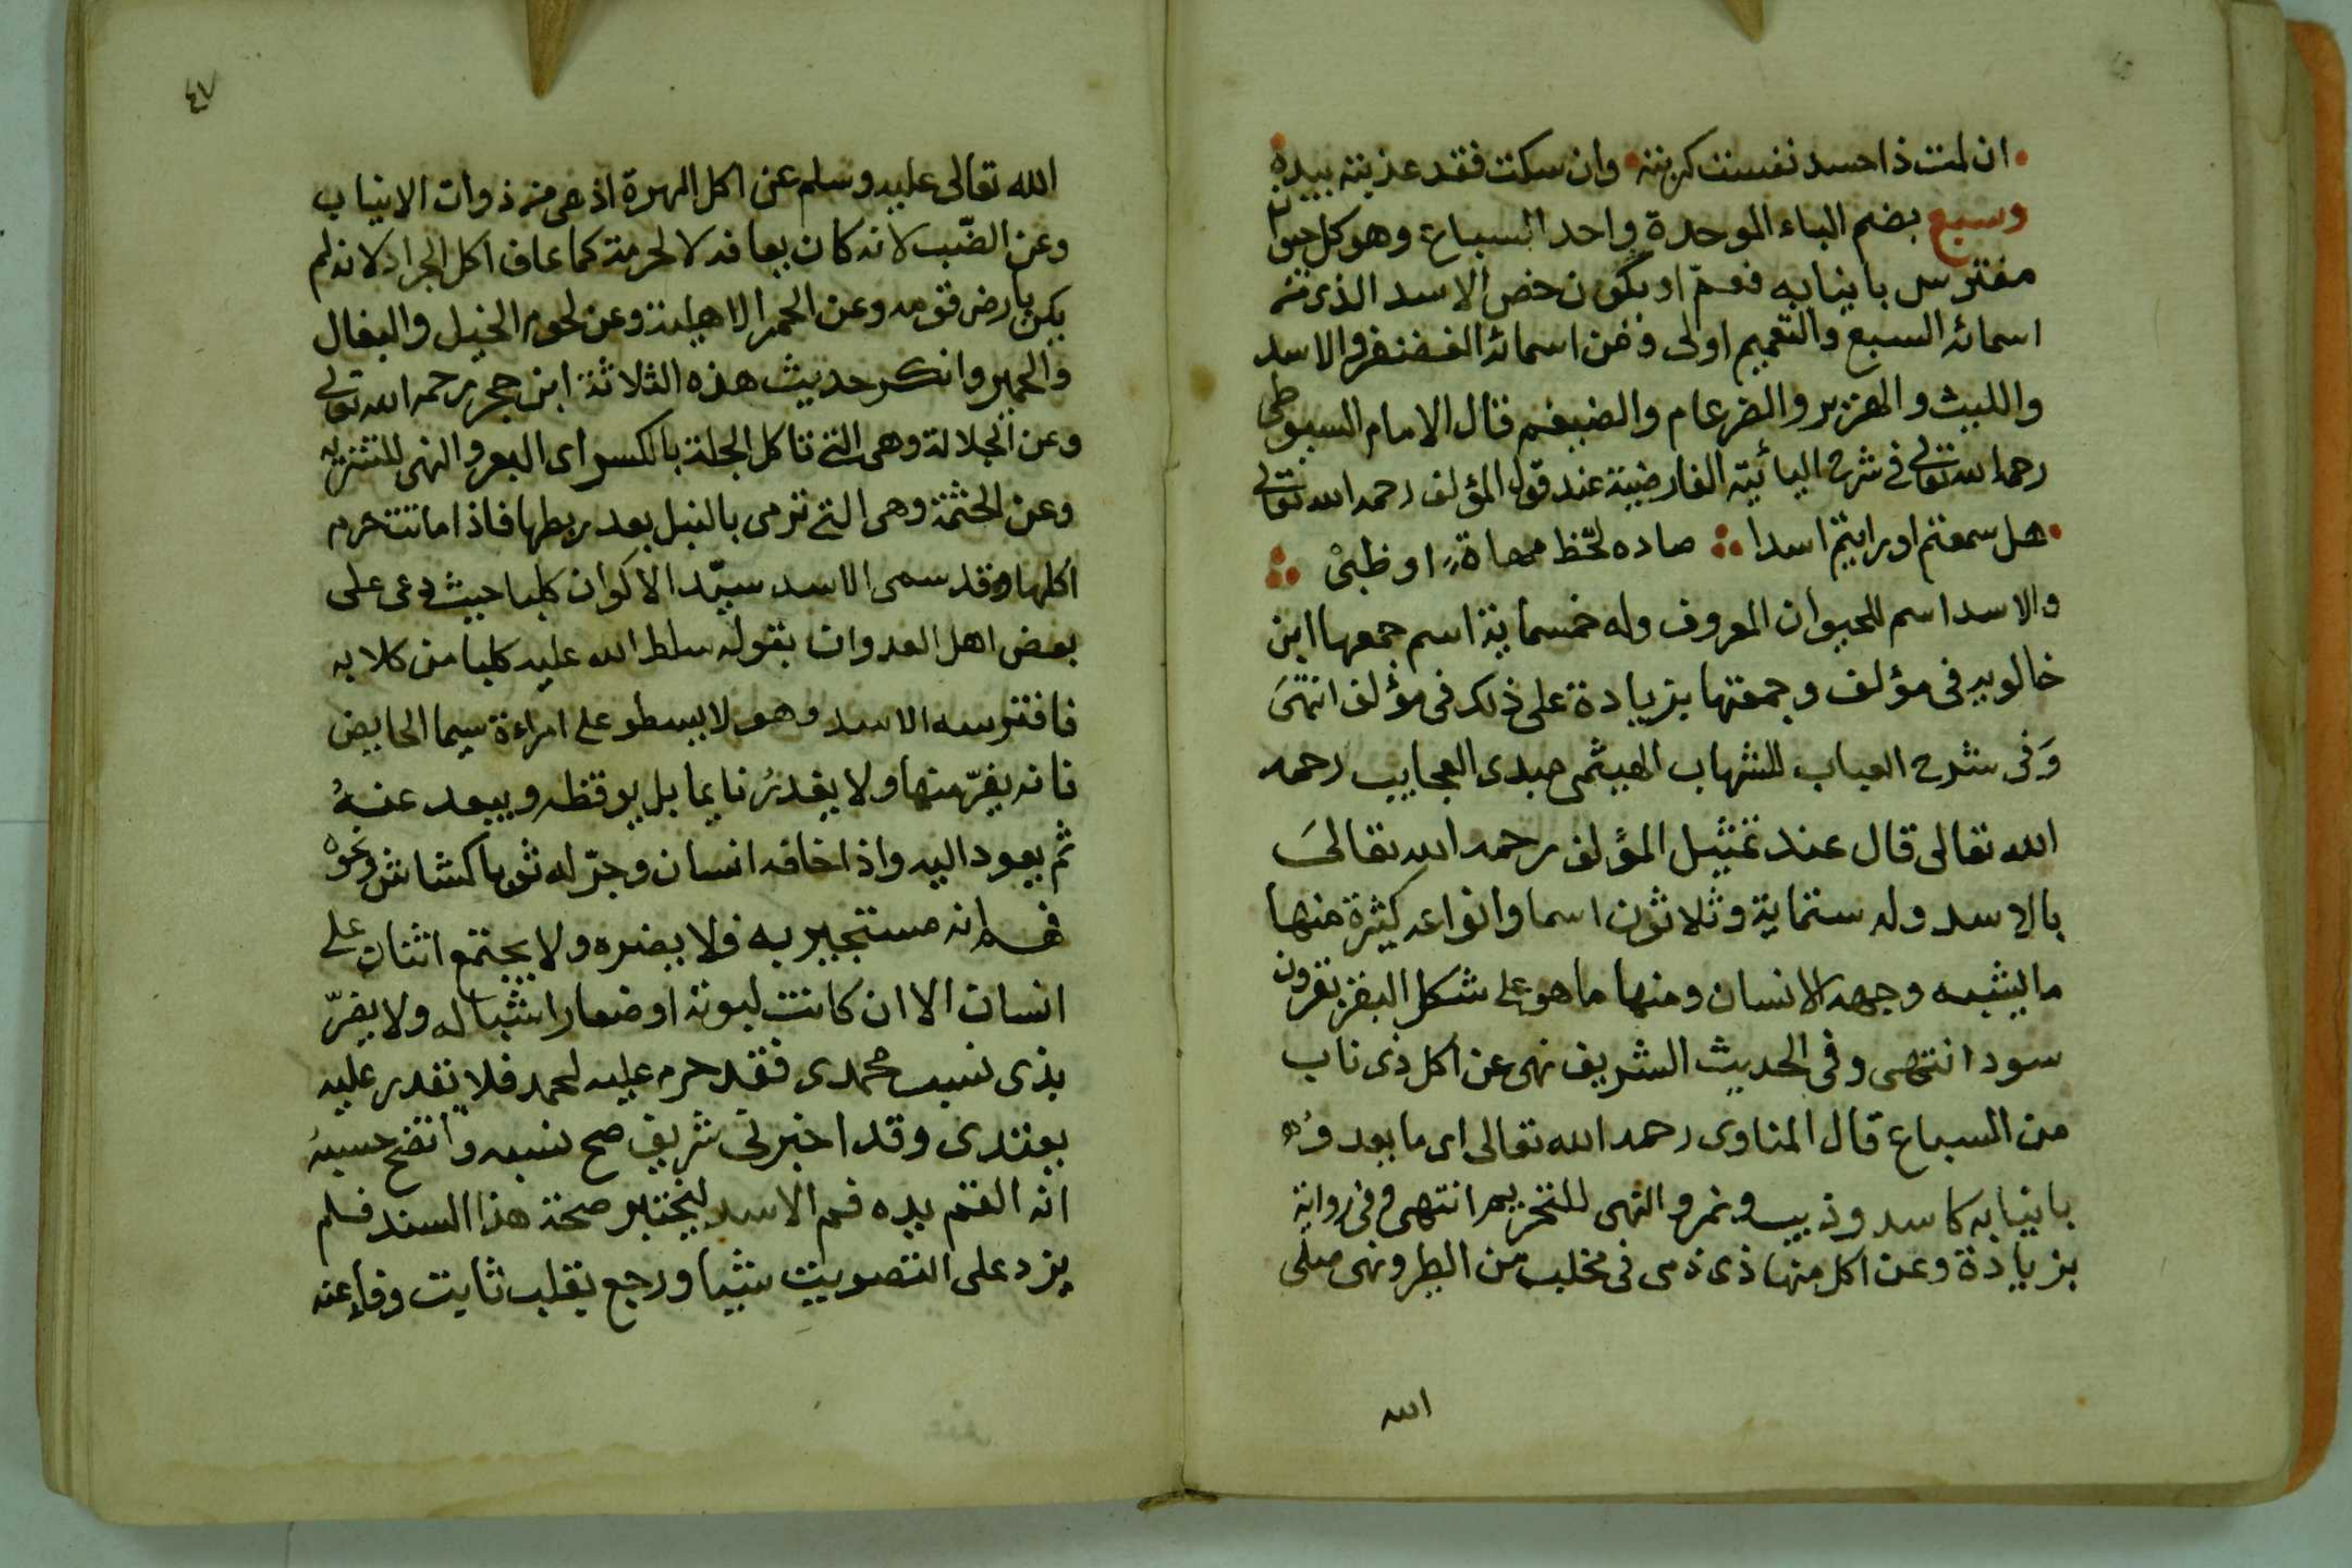 ان لمت ذا حسد نفست كربته وان سكت فقد عذبته بيده
وسبع بضم الباء الموحدة واحد السباع وهو كل حيوان
مفترس بانيابه فعم او يكون خص الاسد الذى من
اسمائه السبع والتعميم اولى ومن اسمائه الغضنفر والاسد
والليث والهزبر والضرغام والضيغم قال الامام السيوطى
رحمه الله تعالى فى شرح اليائية الفارضية عند قول المؤلف رحمه الله تعالى
هل سمعتم او رايتم اسدا صاده لحظ مهاة او ظبى
والاسد اسم للحيوان المعروف وله خمسماية اسم جمعها ابن
خالويه فى مؤلف وجمعتها بزيادة على ذلك فى مؤلف انتهى
وفى شرح العباب للشهاب الهيثمى مبدى العجايب رحمه
الله تعالى قال عند تمثيل المؤلف رحمه الله تعالى
بالاسد وله ستماية وثلاثون اسما وانواعه كثيرة منها
ما يشبه وجهه الانسان ومنها ما هو على شكل البقر بقرون
سود انتهى وفى الحديث الشريف نهى عن اكل ذى ناب
من السباع قال المناوى رحمه الله تعالى اى ما يعدو
بانيابه كاسد وذيب ونمر والنهى للتحريم انتهى وفى رواية
بزيادة وعن اكل منها ذى فى مخلب من الطير ونهى صلى
الله
٤٧
الله تعالى عليه وسلم عن اكل الهرة اذ هى من ذوات الانياب
وعن الضب لانه كان يعافه لا لحرمة كما عاف اكل الجراد لانه لم
يكن بارض قومه وعن الحمر الاهلية وعن لحوم الخيل والبغال
والحمير وانكر حديث هذه الثلاثة ابن حجر رحمه الله تعالى
وعن الجلالة وهى التى تاكل الجلة بالكسر اى البعر والنهى للتنزيه
وعن الجثمة وهى التى ترمى بالنبل بعد ربطها فاذا ماتت حرم
اكلها وقد سمى الاسد سيد الاكوان كلبا حيث دعى على
بعض اهل العدوان بقوله سلط الله عليه كلبا من كلابه
فافترسه الاسد وهو لا يسطو على امراءة سيما الحايض
فانه يفر منها ولا يغدر نايما بل يوقظه ويبعد عنه
ثم يعود اليه واذا خافه انسان وجر له ثوبا كشاش ونحوه
فهم انه مستجير به فلا يضره ولا يجتمع اثنان على
انسان الا ان كانت لبوته او صغار اشباله ولا يضر
بذى نسب محمدى فقد حرم عليه لحمه فلا تقدر عليه
يعتدى وقد اخبرنى شريف صح نسبه واتضح حسبه
انه القم يده فم الاسد ليختبر صحة هذا السند فلم
يزد على التصويت شيا ورجع بقلب ثابت وفاء عنه